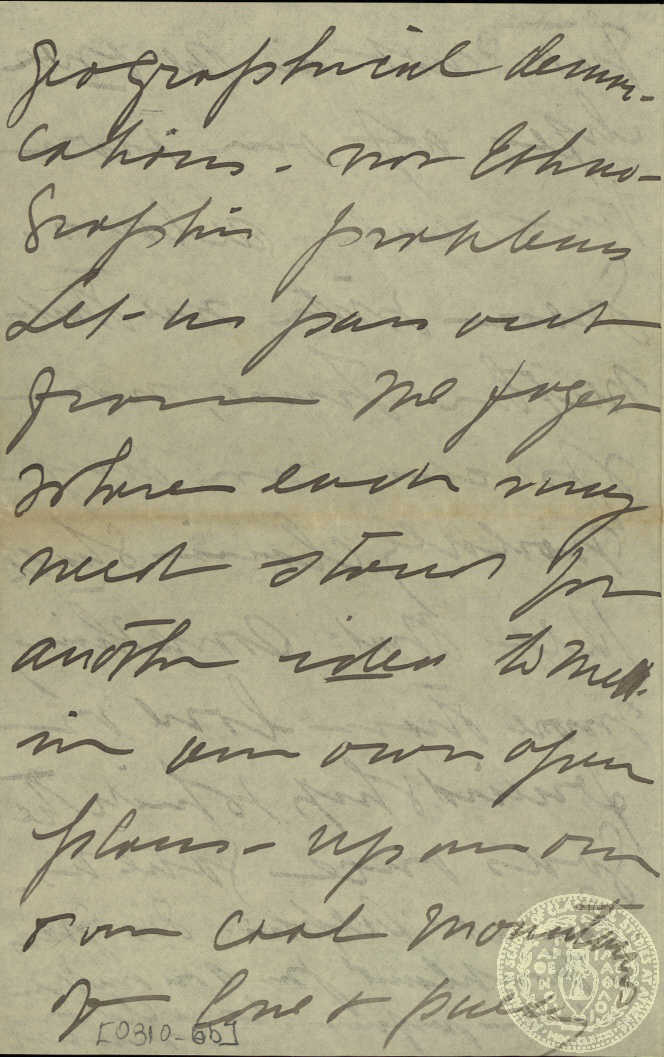 geographical demar-
cations - nor Ethno-
graphic problems
Let us pass out
from the
where each may
need stand for
another idea to me
in our own open
plains - upon our
own cool mountains
of love &
[0310-6b]